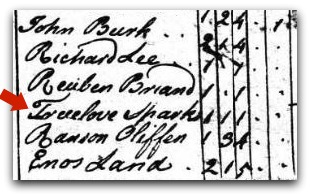 John Burk . 1. 24 . . 1.
Richard Lee 2 1 4
Reuben Briand 1 . 1
Treelove Spark 1 1 1
Ranson Cliffen 1 . 34 .
Enos Land . 2 1 5 .